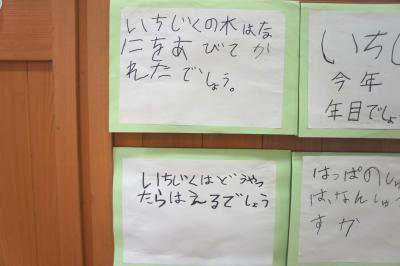 いちじくの木はな
にをあびてか
れたでしょう。
いちじ
今年
年目でしょ
いちじくはどうやっ
たらはえるでしょう
はっぱのし
は、なんしゅ
すか